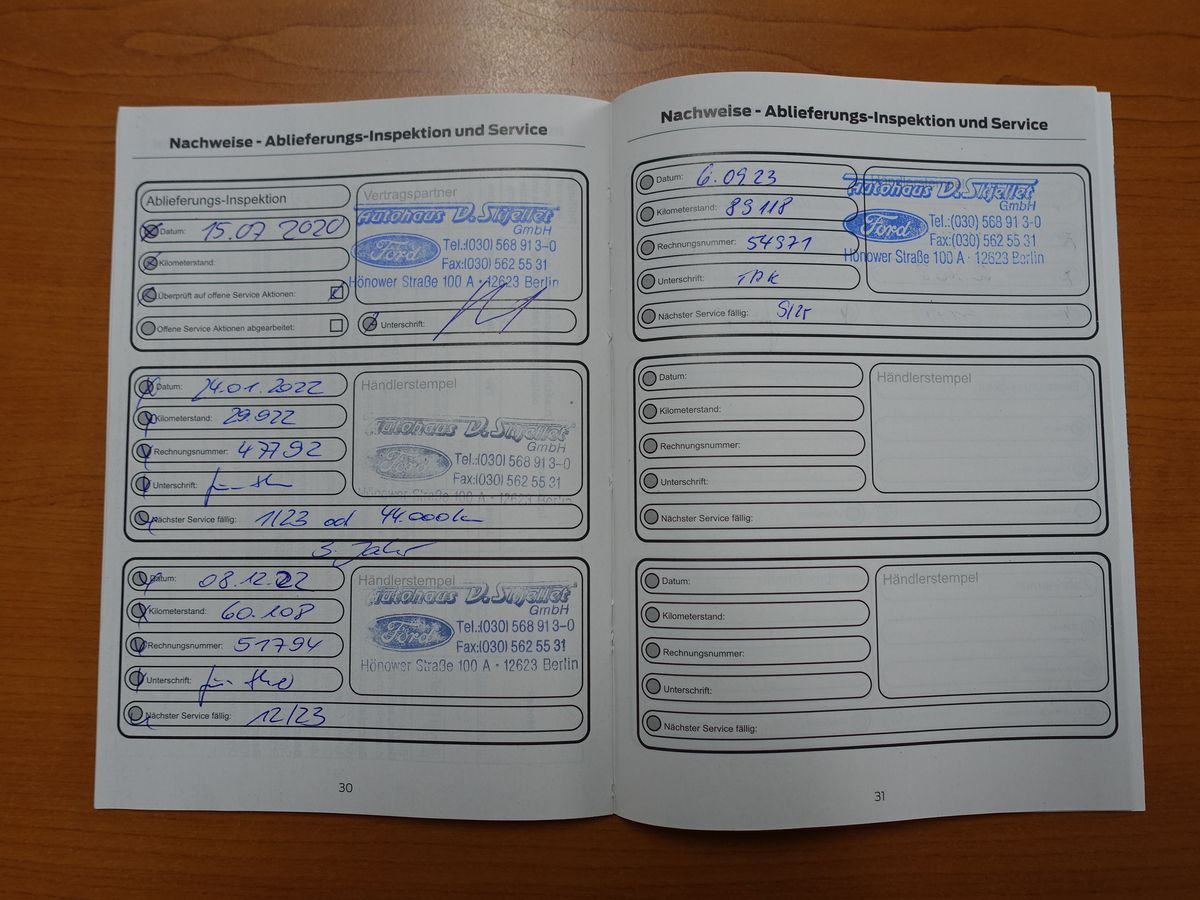 Nachweise - Ablieferungs-Inspektion und Service
Ablieferungs-Inspektion
Datum: 15.07 2020
Kilometerstand:
Überprüft auf offene Service Aktionen:
Offene Service Aktionen abgearbeitet:
Vertragspartner
Autohaus D. Skjellet
GmbH
Ford
Tel.:(030) 568 91 3-0
Fax:(030) 562 55 31
Hönower Straße 100 A · 12623 Berlin
Unterschrift:
Datum: 24.01.2022
Kilometerstand: 29.922
Rechnungsnummer: 47792
Unterschrift:
Nächster Service fällig: 1/23 od 44.000km
Händlerstempel
Autohaus D. Skjellet
GmbH
Ford
Tel.:(030) 568 91 3-0
Fax:(030) 562 55 31
Hönower Straße 100 A · 12623 Berlin
3. Jahr
Datum: 08.12.22
Kilometerstand: 60.108
Rechnungsnummer: 51794
Unterschrift:
Nächster Service fällig: 12/23
Händlerstempel
Autohaus D. Skjellet
GmbH
Ford
Tel.:(030) 568 91 3-0
Fax:(030) 562 55 31
Hönower Straße 100 A · 12623 Berlin
30
Nachweise - Ablieferungs-Inspektion und Service
Datum: 6.09.23
Kilometerstand: 89118
Rechnungsnummer: 54971
Unterschrift:
Nächster Service fällig:
Händlerstempel
Autohaus D. Skjellet
GmbH
Ford
Tel.:(030) 568 91 3-0
Fax:(030) 562 55 31
Hönower Straße 100 A · 12623 Berlin
Datum:
Kilometerstand:
Rechnungsnummer:
Unterschrift:
Nächster Service fällig:
Händlerstempel
Datum:
Kilometerstand:
Rechnungsnummer:
Unterschrift:
Nächster Service fällig:
Händlerstempel
31